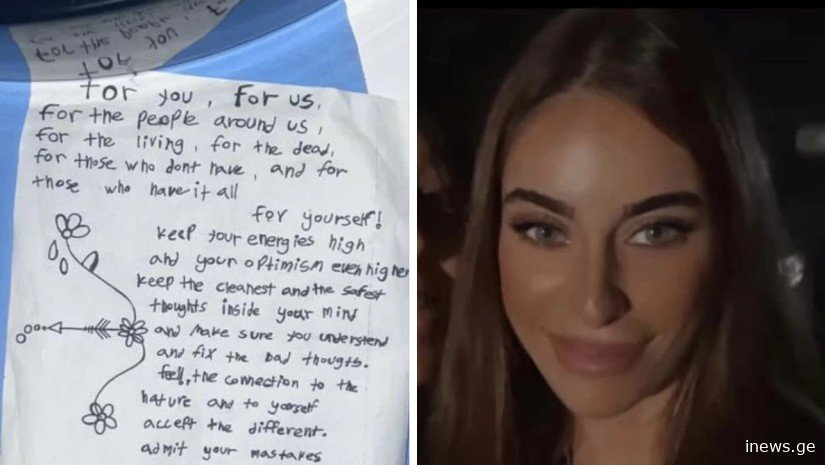 for the people
for you
for
for you, for us,
for the people around us,
for the living, for the dead,
for those who dont have, and for
those who have it all
for yourself!
keep your energies high
and your optimism even higher
keep the cleanest and the safest
thoughts inside your mind
and make sure you understend
and fix the bad thougts.
feel, the connection to the
nature and to yourself
accept the different.
admit your mastakes
inews.ge